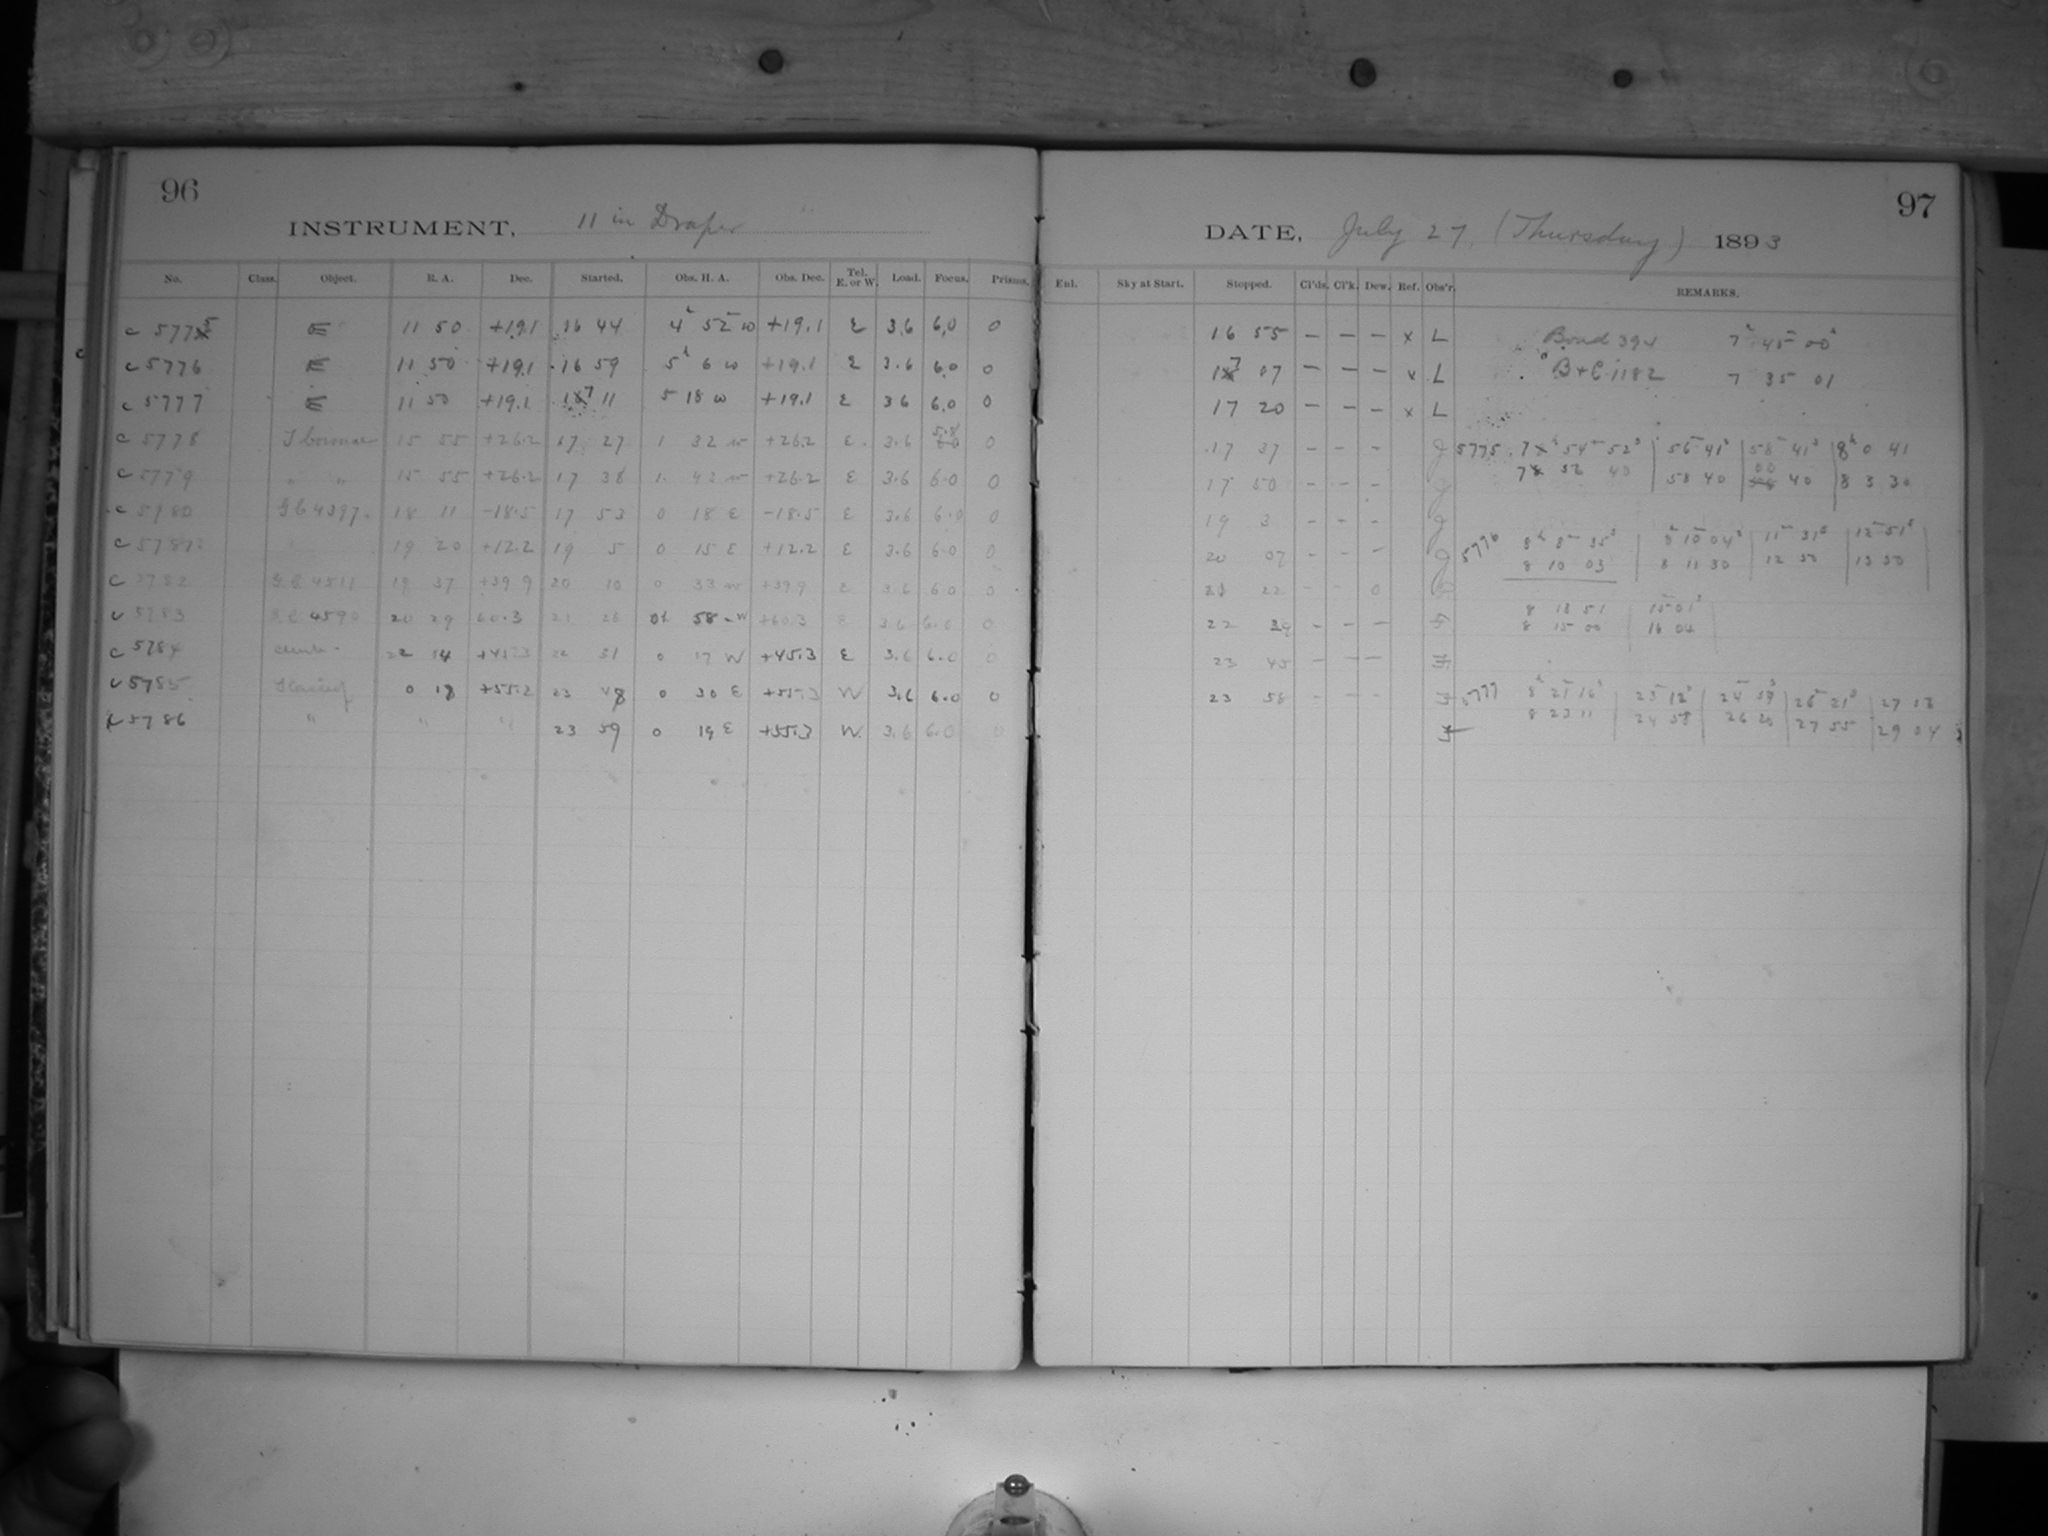 96
INSTRUMENT, 11 in Draper
No. Class. Object. R. A. Dec. Started. Obs. H. A. Obs. Dec. Tel. E. or W. Load. Focus. Prisms.
c 5775 E 11 50 +19.1 16 44 4h 52m w +19.1 E 3.6 6.0 0
c 5776 E 11 50 +19.1 16 59 5h 6 w +19.1 E 3.6 6.0 0
c 5777 E 11 50 +19.1 17 11 5 18 w +19.1 E 3.6 6.0 0
c 5778 T Coronae 15 55 +26.2 17 27 1 32 w +26.2 E. 3.6 5.8 0
c 5779 " " 15 55 +26.2 17 38 1. 43 w +26.2 E 3.6 6.0 0
c 5780 G.C. 4397 18 11 -18.5 17 53 0 18 E -18.5 E 3.6 6.0 0
c 5781 19 20 +12.2 19 5 0 15 E +12.2 E 3.6 6.0 0
c 5782 G.C. 19 37 +39.9 20 10 0 33 w +39.9 E 3.6 6.0 0
c 5783 G.C. 4590 20 29 60.3 21 26 0h 58m W +60.3 E 3.6 6.0 0
c 5784 22 14 +45.3 22 31 0 17 W +45.3 E 3.6 6.0 0
c 5785 0 18 +55.2 23 48 0 30 E +55.3 W 3.6 6.0 0
c 5786 " " " 23 59 0 19 E +55.3 W. 3.6 6.0 0
97
DATE, July 27, (Thursday) 1893
Enl. Sky at Start. Stopped. Cl'ds. Cl'k. Dew. Ref. Obs'r. REMARKS.
16 55 – – – x L Bond 394 7h 45m 00s
17 07 – – – x L B+C 1182 7 35 01
17 20 – – – x L
17 37 – – – J 5775 7h 54m 52s | 56m 41s | 58m 41s | 8h 0 41
17 50 – – – J 7 56 40 58 40 00 40 8 3 30
19 3 – – – J
20 07 – – – J 5776 8h 8m 35s | 8h 10m 04s | 11m 31s | 12m 51s
8 10 03 | 8 11 30 | 12 50 | 13 50
21 22 – – 0
8 13 51 | 15m 01s
22 39 – – – J 8 15 00 | 16 04
23 45 – – – J
23 58 – – – J 5777 8h 21m 16s | 23m 12s | 24m 59s | 26m 21s | 27 03
J 8 23 11 | 24 58 | 26 20 | 27 55 | 29 04